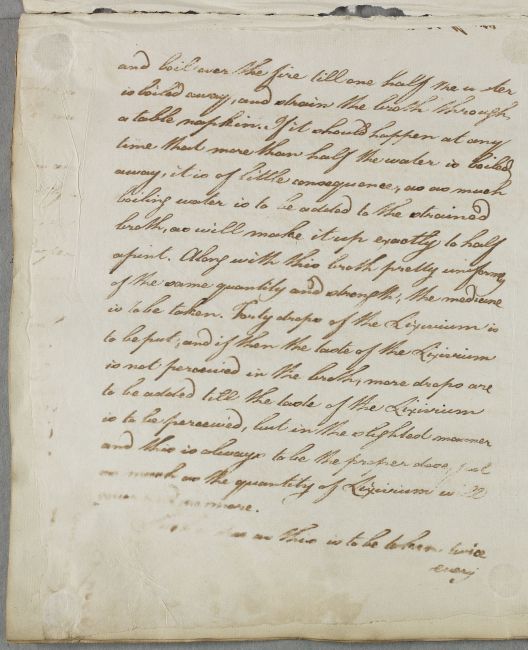 and boil over the fire till one half the water
is boiled away, and drain the broth through
a table napkin. If it should happen at any
time that more than half the water is boiled
away, it is of little consequence, as as much
boiling water is to be added to the strained
broth, as will make it up exactly to half
a pint. Along with this broth pretty uniformly
of the same quantity and strength, the medicine
is to be taken. Forty drops of the Lixivium is
to be put, and if then the taste of the Lixivium
is not perceived in the broth, more drops are
to be added till the taste of the Lixivium
is to be perceived, but in the slightest manner
and this is always to be the proper dose, just
as much as the quantity of Lixivium is
more.
as this is to be taken twice
every